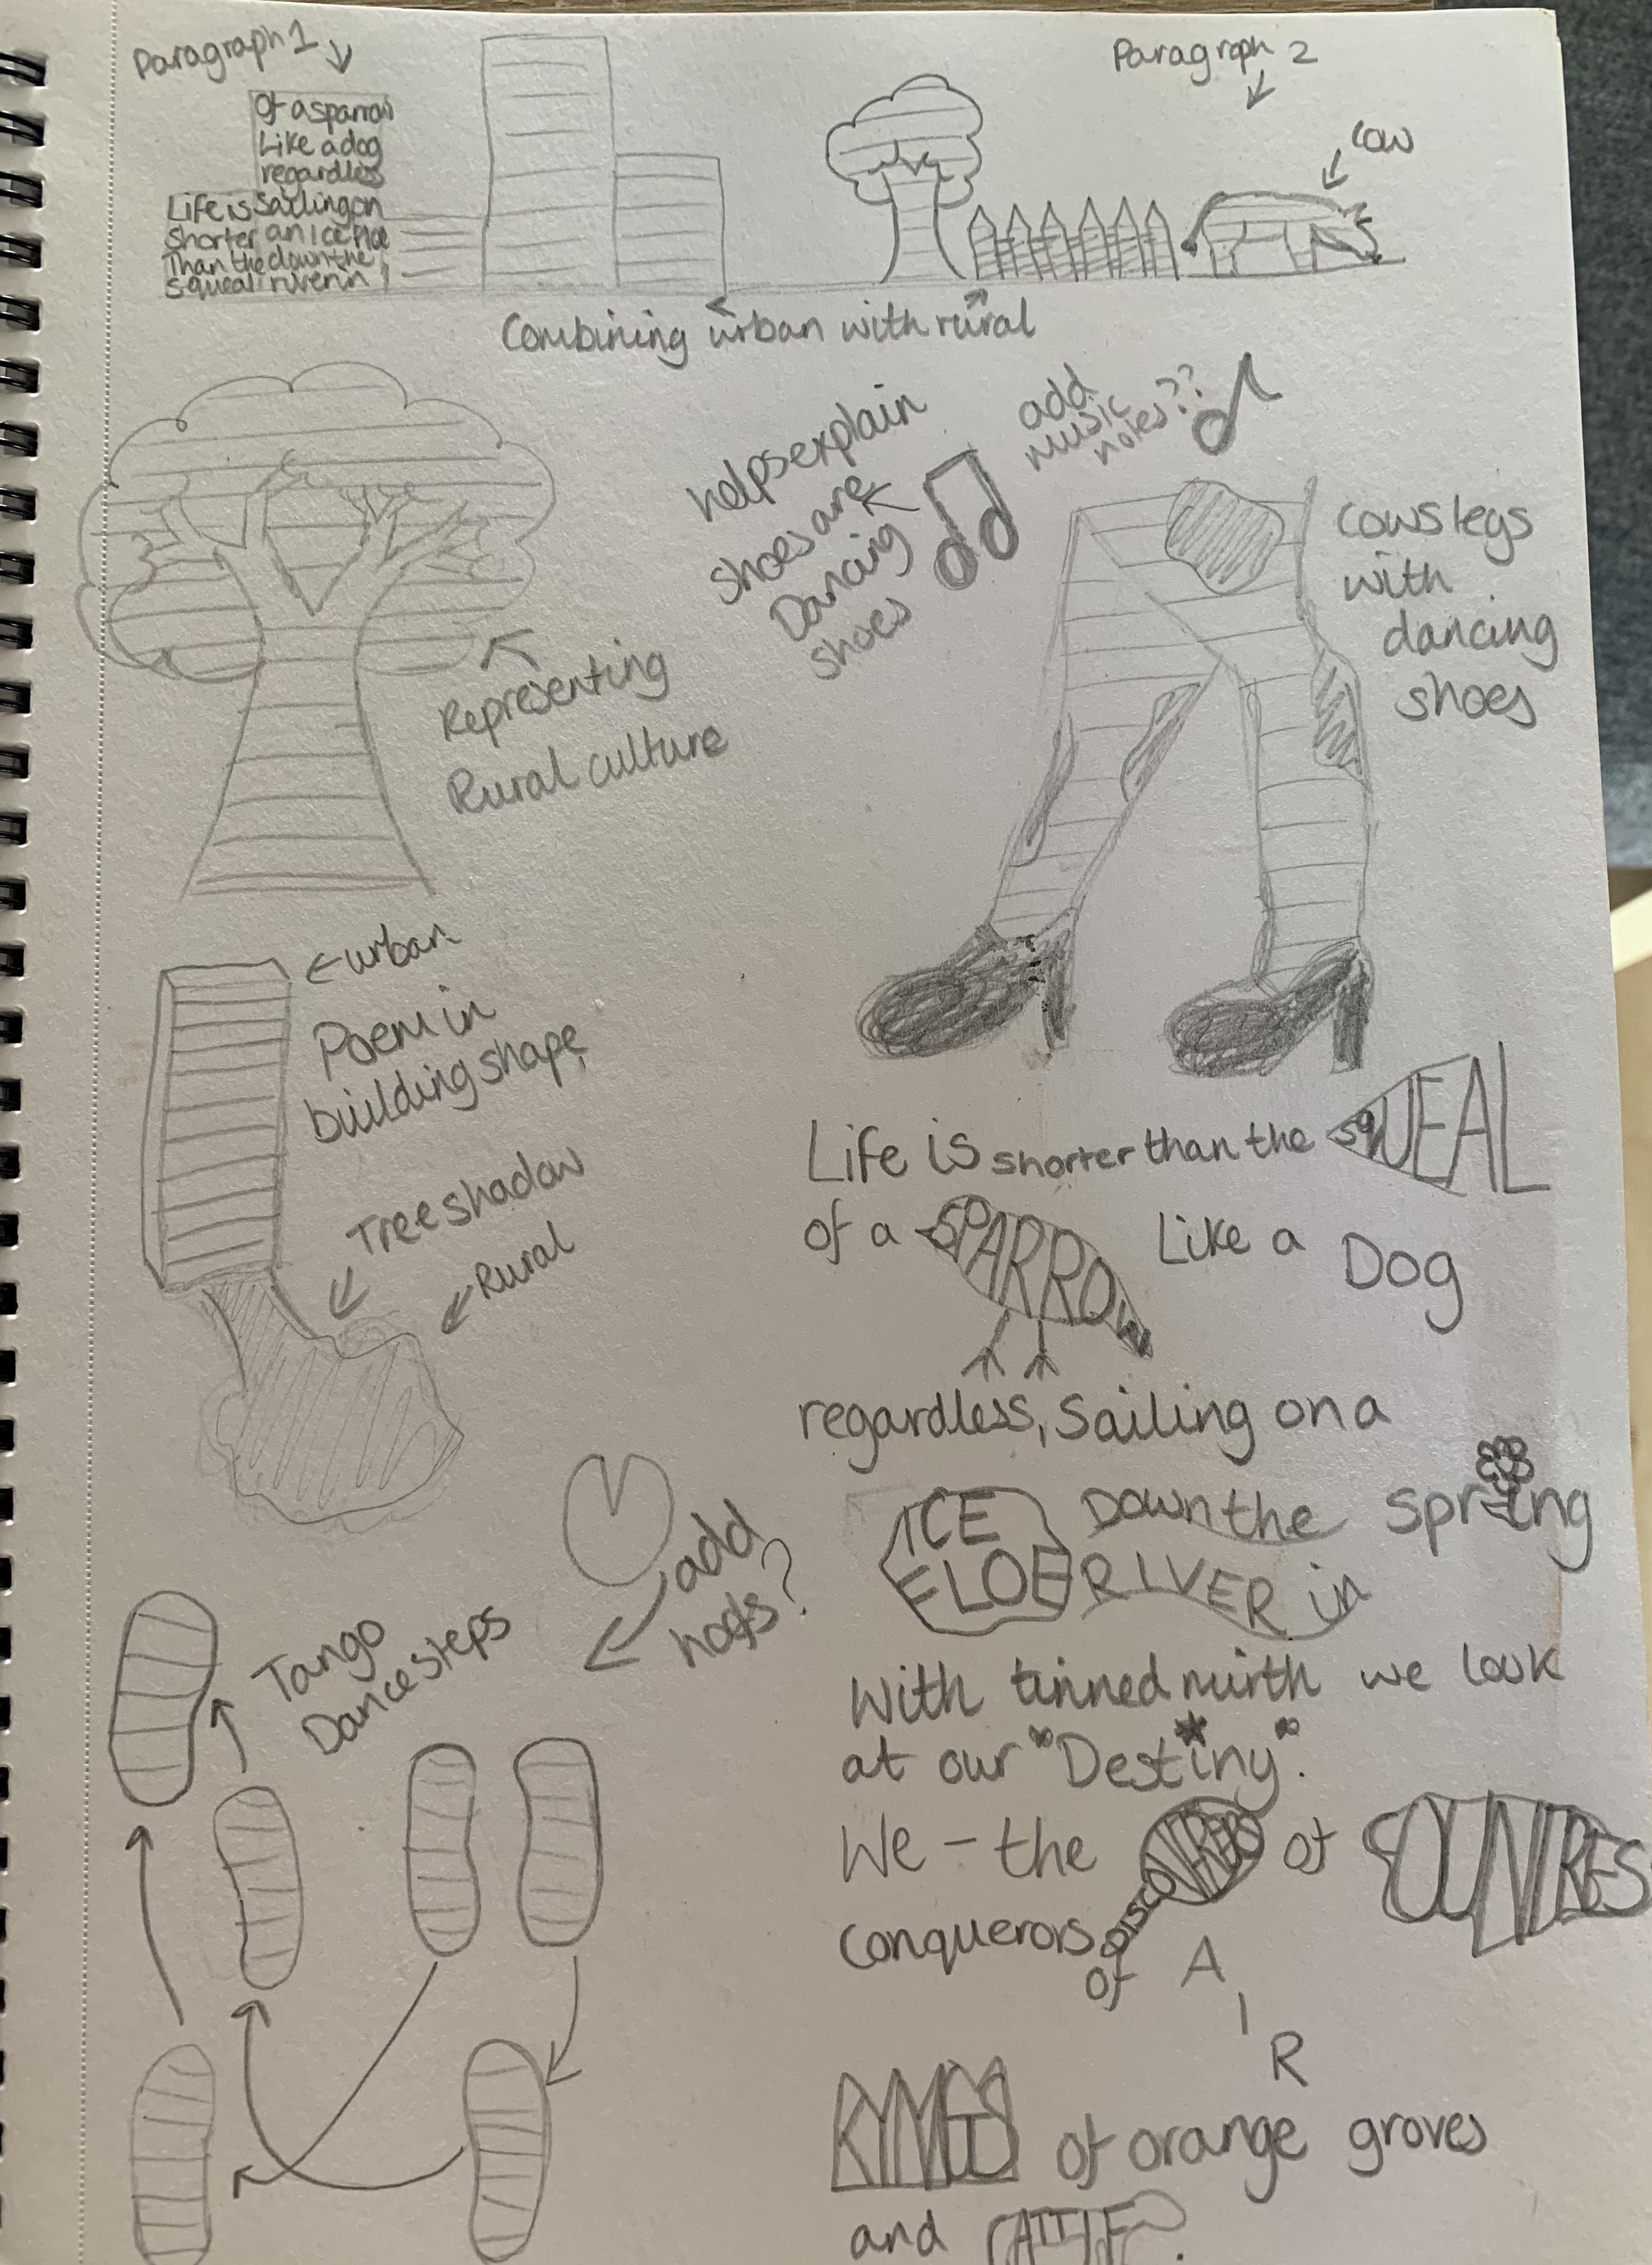 Paragraph 1
Of a sparrow
Like a dog
regardless
Life is Sailing on
Shorter an Ice Floe
Than the down the
squeal river in
Paragraph 2
cow
Combining urban with rural
helps explain
shoes are
Dancing
shoes
add
music
notes??
Cows legs
with
dancing
shoes
Representing
Rural culture
urban
Poem in
building shape
Tree shadow
Rural
add
hoofs?
Tango
Dance steps
Life is shorter than the SqUEAL
of a SPARROW Like a Dog
regardless, Sailing on a
ICE FLOE Down the spring
RIVER in
With tinned mirth we look
at our "Destiny".
We - the DISCOVERERS of COUNTRIES
Conquerors of AIR
KINGS of orange groves
and CATTLE.